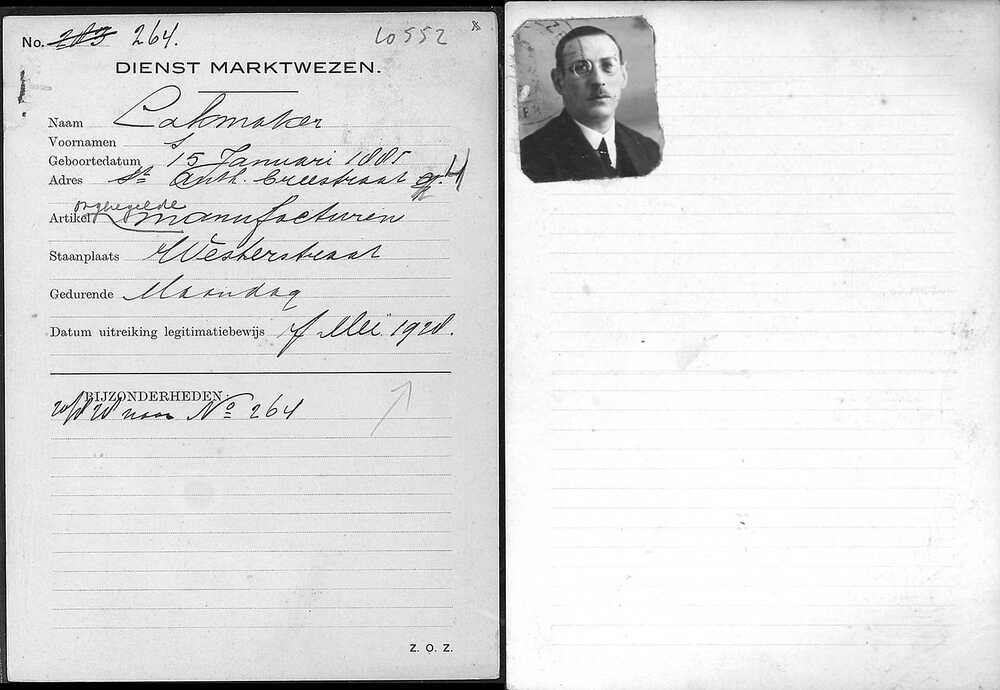 No. 283 264. 10552
DIENST MARKTWEZEN.
Naam Lakmaker
Voornamen S
Geboortedatum 15 Januari 1885
Adres St. Anth. breestraat 4
ongeregelde
Artikel manufacturen
Staanplaats Westerstraat
Gedurende Maandag
Datum uitreiking legitimatiebewijs 7 Mei 1928.
BIJZONDERHEDEN.
naar No 264
Z. O. Z.